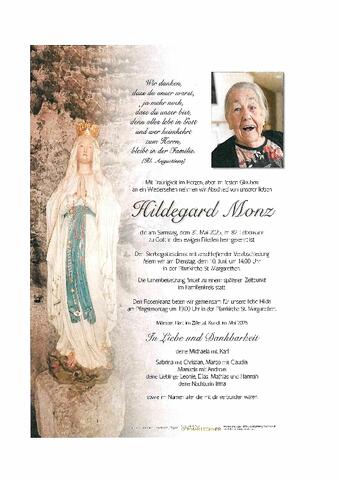 Wir danken,
dass du unser warst,
ja mehr noch,
dass du unser bist,
denn alles lebt in Gott
und wer heimkehrt
zum Herrn,
bleibt in der Familie.
(Hl. Augustinus)
Mit Traurigkeit im Herzen, aber im festen Glauben
an ein Wiedersehen nehmen wir Abschied von unserer lieben
Hildegard Monz
die am Samstag, dem 31. Mai 2025, im 87. Lebensjahr
zu Gott in den ewigen Frieden heimgekehrt ist.
Den Sterbegottesdienst mit anschließender Verabschiedung
feiern wir am Dienstag, dem 10. Juni, um 14.00 Uhr
in der Pfarrkirche St. Margarethen.
Die Urnenbeisetzung findet zu einem späteren Zeitpunkt
im Familienkreis statt.
Den Rosenkranz beten wir gemeinsam für unsere liebe Hilde
am Pfingstmontag um 19.00 Uhr in der Pfarrkirche St. Margarethen.
Hart im Zillertal, im Mai 2025
In Liebe und Dankbarkeit
deine Michaela mit Karl
Sabrina mit Christian, Marco mit Claudia
Manuela mit Andreas
deine Lieblinge Leonie, Elias, Mathias und Hannah
deine Nachbarin Irma
sowie im Namen aller, die mit dir verbunden waren